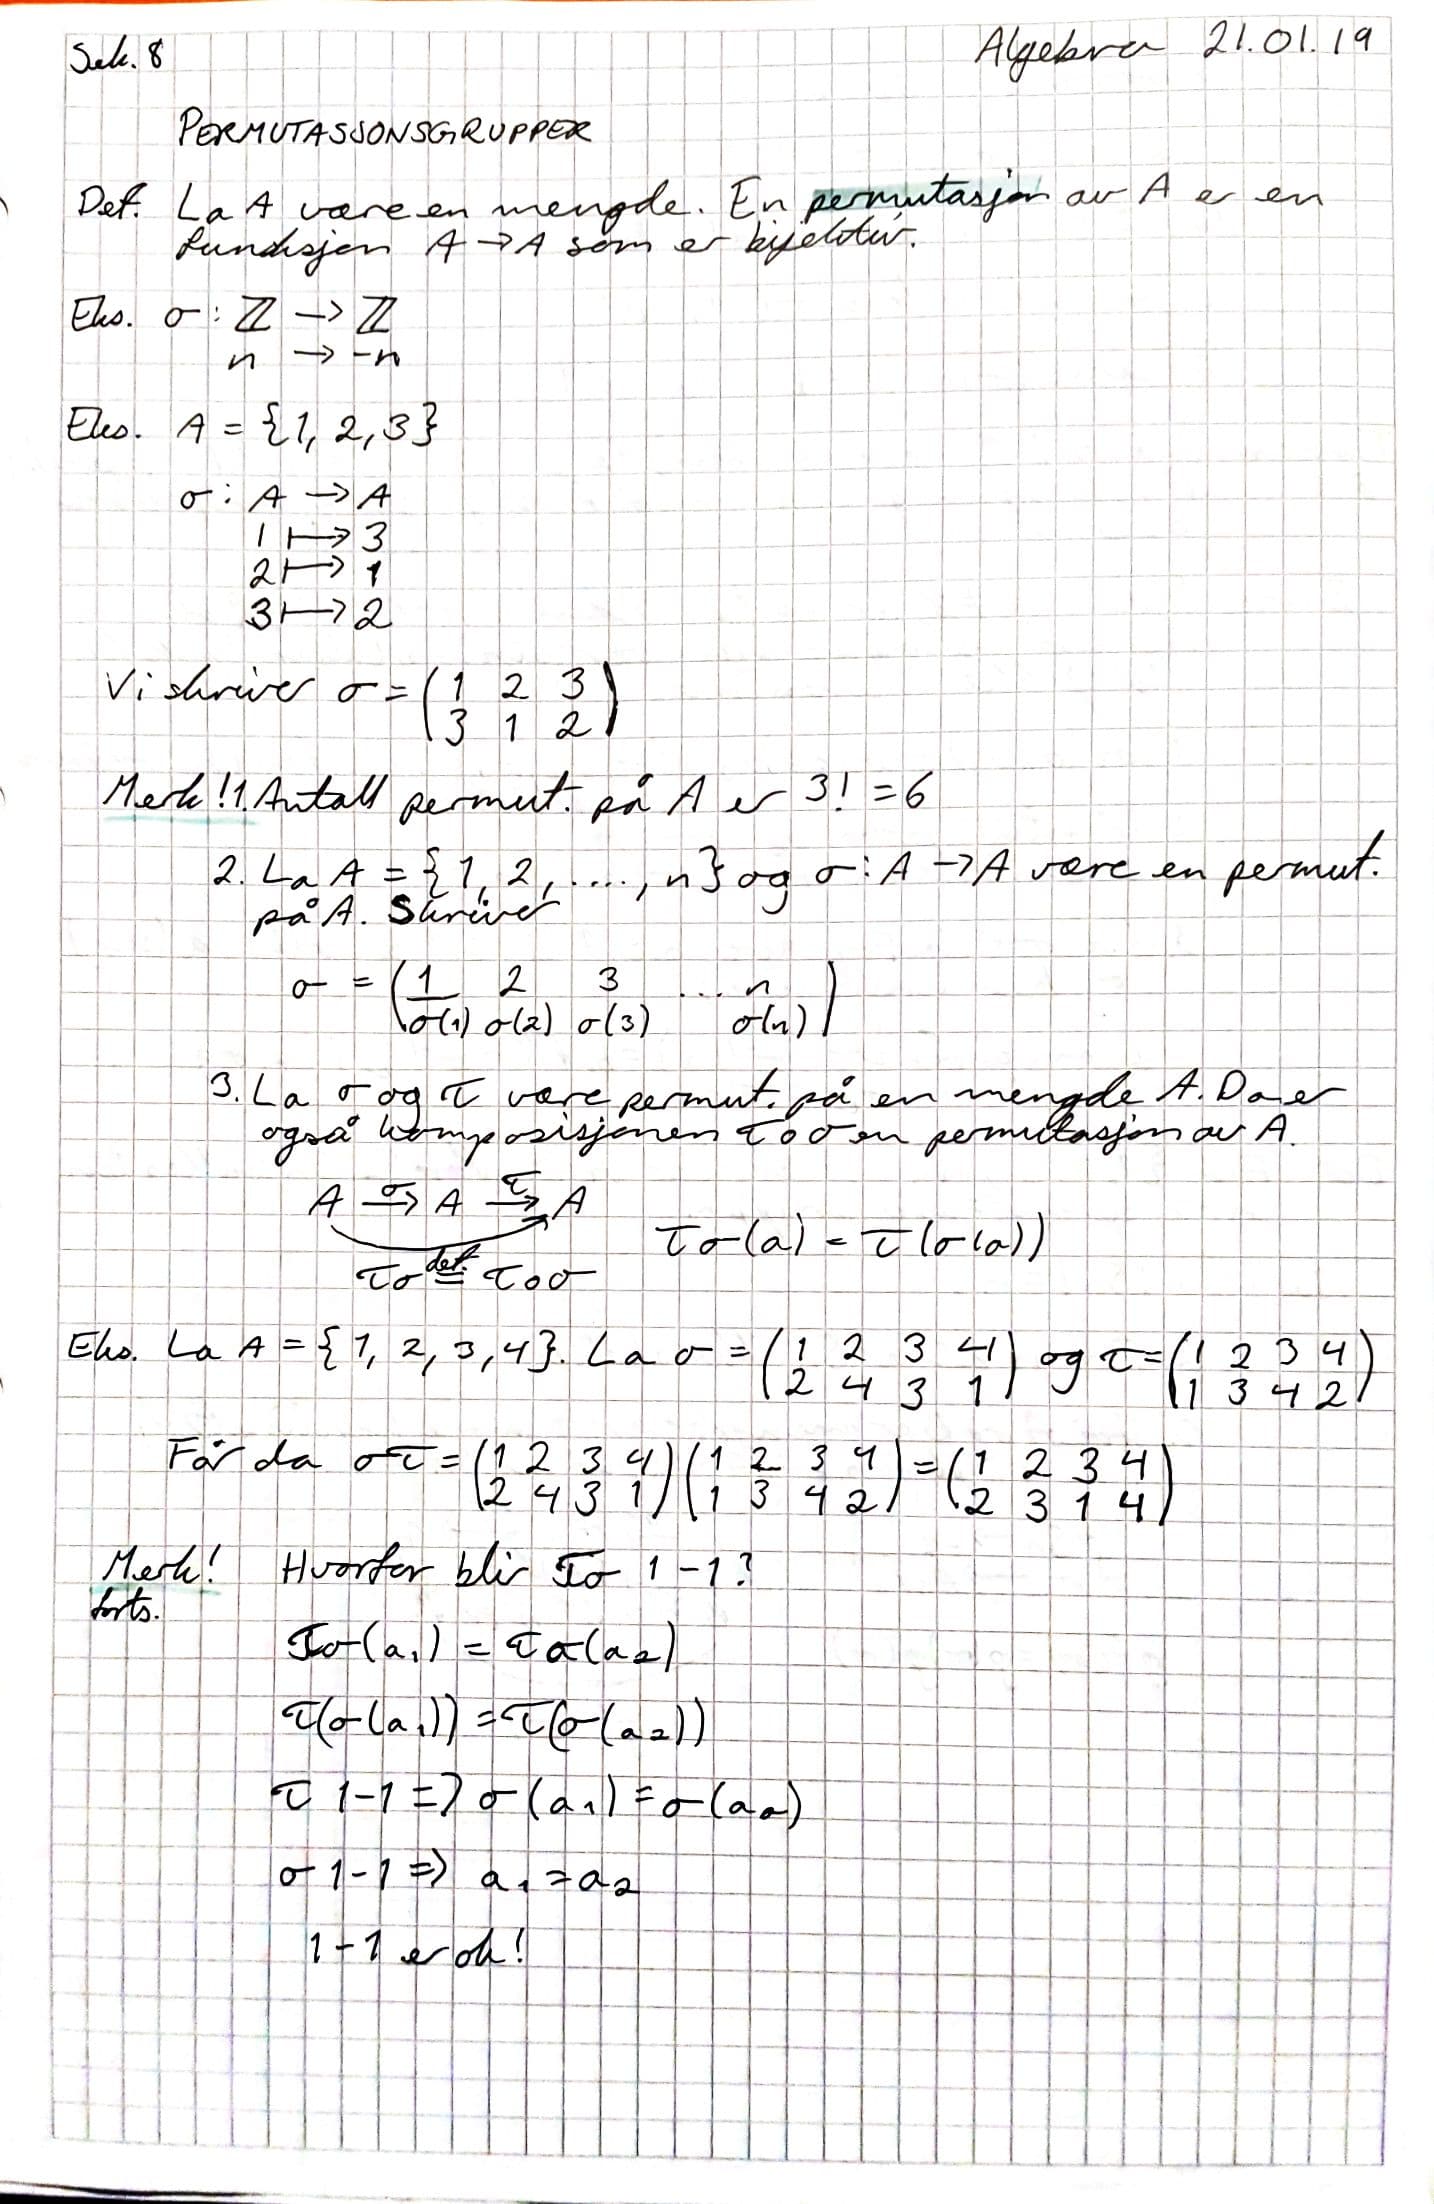 Sek. 8
Algebra 21.01.19
PERMUTASJONSGRUPPER
Def. La A være en mengde. En permutasjon av A er en
funksjon A → A som er bijektiv.
Eks. σ : ℤ → ℤ
n → -n
Eks. A = {1, 2, 3}
σ : A → A
1 ↦ 3
2 ↦ 1
3 ↦ 2
Vi skriver σ = (1 2 3
3 1 2)
Merk! 1. Antall permut. på A er 3! = 6
2. La A = {1, 2, ...., n} og σ : A → A være en permut.
på A. Skriver
σ = (1 2 3 ... n
σ(1) σ(2) σ(3) σ(n))
3. La σ og τ være permut. på en mengde A. Da er
også komposisjonen τ∘σ en permutasjon av A.
A →σ A →τ A
τσ(a) = τ(σ(a))
τσ def.= τ∘σ
Eks. La A = {1, 2, 3, 4}. La σ = (1 2 3 4 og τ = (1 2 3 4
2 4 3 1) 1 3 4 2)
Får da στ = (1 2 3 4 (1 2 3 4 = (1 2 3 4
2 4 3 1) 1 3 4 2) 2 3 1 4)
Merk! Hvorfor blir τσ 1-1?
forts.
τσ(a₁) = τσ(a₂)
τ(σ(a₁)) = τ(σ(a₂))
τ 1-1 => σ(a₁) = σ(a₂)
σ 1-1 => a₁ = a₂
1-1 er ok!